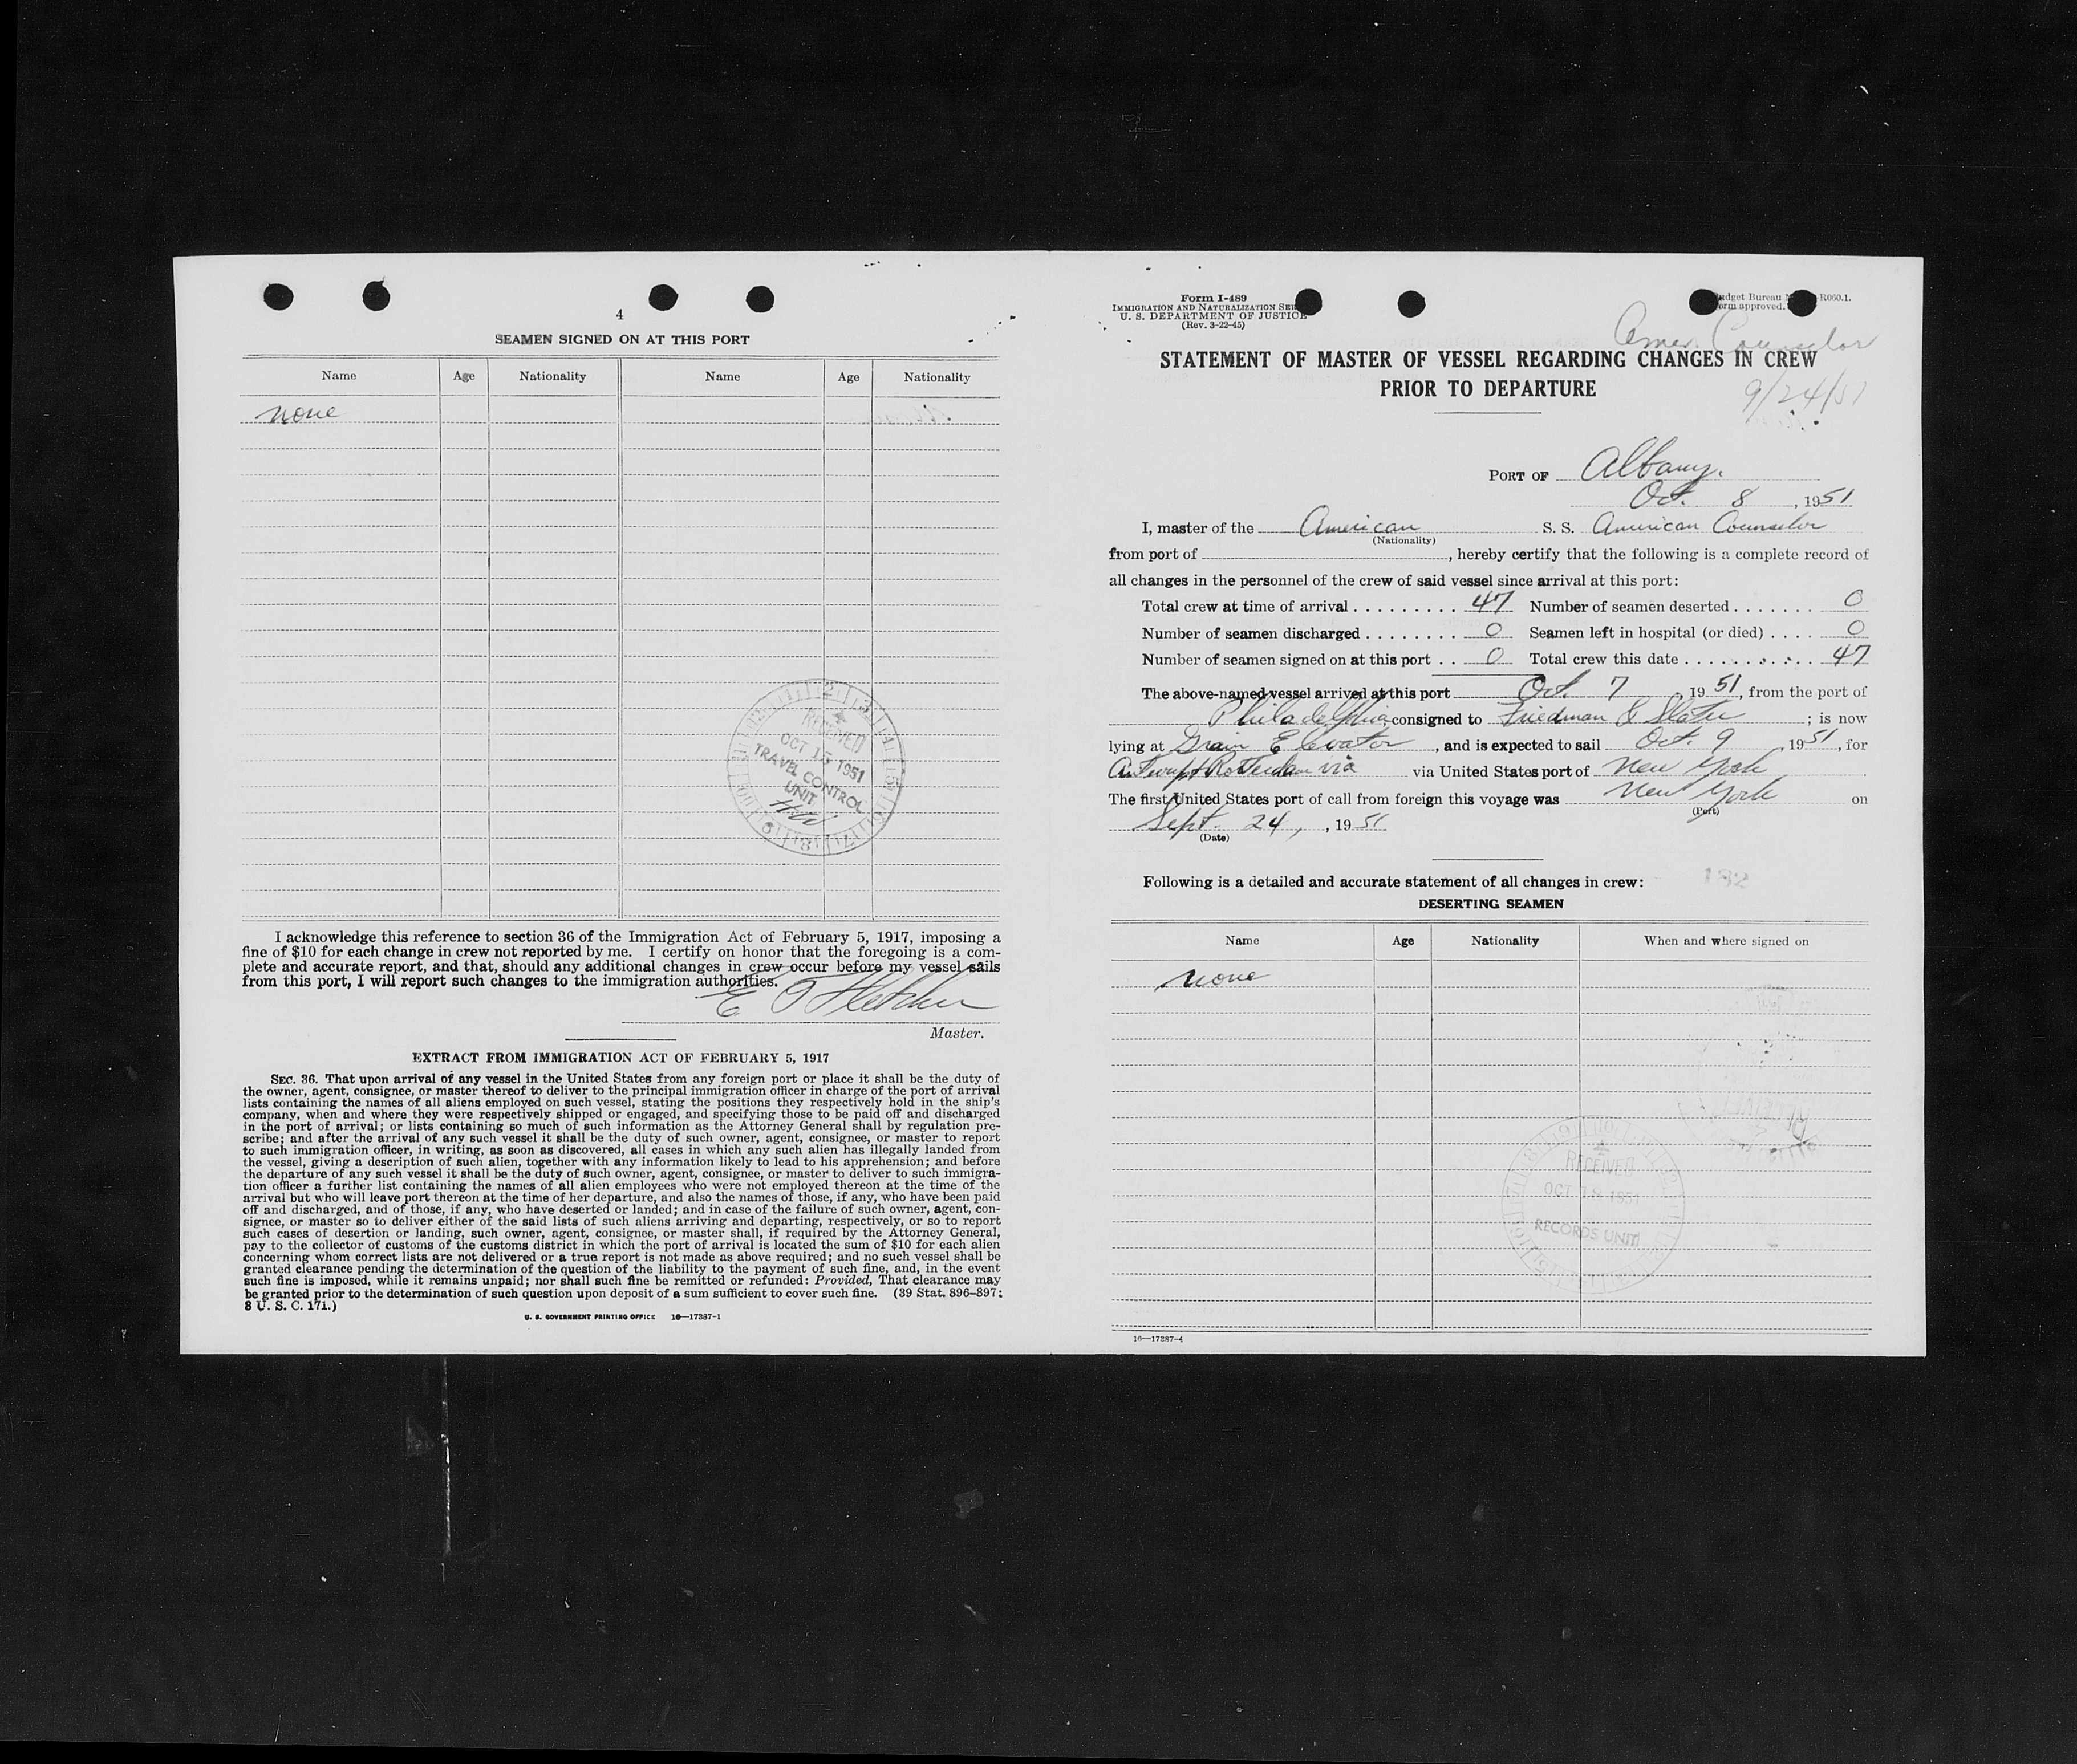 4
SEAMEN SIGNED ON AT THIS PORT
Name Age Nationality Name Age Nationality
none
RECEIVED
OCT 15 1951
TRAVEL CONTROL
UNIT
I acknowledge this reference to section 36 of the Immigration Act of February 5, 1917, imposing a
fine of $10 for each change in crew not reported by me. I certify on honor that the foregoing is a com-
plete and accurate report, and that, should any additional changes in crew occur before my vessel sails
from this port, I will report such changes to the immigration authorities.
E T Fletcher
Master.
EXTRACT FROM IMMIGRATION ACT OF FEBRUARY 5, 1917
SEC. 36. That upon arrival of any vessel in the United States from any foreign port or place it shall be the duty of
the owner, agent, consignee, or master thereof to deliver to the principal immigration officer in charge of the port of arrival
lists containing the names of all aliens employed on such vessel, stating the positions they respectively hold in the ship's
company, when and where they were respectively shipped or engaged, and specifying those to be paid off and discharged
in the port of arrival; or lists containing so much of such information as the Attorney General shall by regulation pre-
scribe; and after the arrival of any such vessel it shall be the duty of such owner, agent, consignee, or master to report
to such immigration officer, in writing, as soon as discovered, all cases in which any such alien has illegally landed from
the vessel, giving a description of such alien, together with any information likely to lead to his apprehension; and before
the departure of any such vessel it shall be the duty of such owner, agent, consignee, or master to deliver to such immigra-
tion officer a further list containing the names of all alien employees who were not employed thereon at the time of the
arrival but who will leave port thereon at the time of her departure, and also the names of those, if any, who have been paid
off and discharged, and of those, if any, who have deserted or landed; and in case of the failure of such owner, agent, con-
signee, or master so to deliver either of the said lists of such aliens arriving and departing, respectively, or so to report
such cases of desertion or landing, such owner, agent, consignee, or master shall, if required by the Attorney General,
pay to the collector of customs of the customs district in which the port of arrival is located the sum of $10 for each alien
concerning whom correct lists are not delivered or a true report is not made as above required; and no such vessel shall be
granted clearance pending the determination of the question of the liability to the payment of such fine, and, in the event
such fine is imposed, while it remains unpaid; nor shall such fine be remitted or refunded: Provided, That clearance may
be granted prior to the determination of such question upon deposit of a sum sufficient to cover such fine. (39 Stat. 896-897;
8 U. S. C. 171.)
U. S. GOVERNMENT PRINTING OFFICE 16—17387-1
Form I-489
IMMIGRATION AND NATURALIZATION SER
U. S. DEPARTMENT OF JUSTICE
(Rev. 3-22-45)
udget Bureau R060.1.
orm approved.
Amer. Counselor
STATEMENT OF MASTER OF VESSEL REGARDING CHANGES IN CREW
PRIOR TO DEPARTURE
9/24/51
PORT OF Albany.
Oct. 8, 1951
I, master of the American S. S. American Counselor
(Nationality)
from port of , hereby certify that the following is a complete record of
all changes in the personnel of the crew of said vessel since arrival at this port:
Total crew at time of arrival . . . . . . . . . 47 Number of seamen deserted . . . . . . . 0
Number of seamen discharged . . . . . . . . 0 Seamen left in hospital (or died) . . . . 0
Number of seamen signed on at this port . . 0 Total crew this date . . . . . . . . . . . 47
The above-named vessel arrived at this port Oct. 7, 1951, from the port of
Philadelphia, consigned to Friedman & Slater ; is now
lying at Grain Elevator, and is expected to sail Oct. 9, 1951, for
Antwerp + Rotterdam via via United States port of New York
The first United States port of call from foreign this voyage was New York on
(Port)
Sept. 24, , 1951
(Date)
Following is a detailed and accurate statement of all changes in crew: 132
DESERTING SEAMEN
Name Age Nationality When and where signed on
none
RECEIVED
OCT 19 1951
RECORDS UNIT
16—17387-4